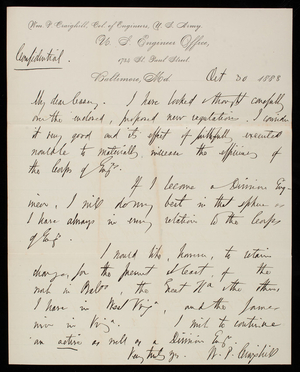 Wm. P. Craighill, Col. of Engineers, U. S. Army.
U. S. Engineer Office,
1734 St. Paul Street.
Confidential.
Baltimore, Md. Oct 30 1888
My dear Casey. I have looked & thought carefully
over the enclosed, proposed new regulations. I consider
it very good and its effect if faithfully executed
would be to materially increase the efficiency of
the Corps of Engrs.
If I become a Division Eng-
ineer, I will do my best in that sphere as
I have always in every relation to the Corps
of Engrs.
I would like, however, to retain
charge, for the present at least, of the
work in Balto, the Great Ka & the others
I have in West Virga, and the James
river in Virga. I wish to continue
an active as well as a Division Engr.
Very truly yrs. W. P. Craighill